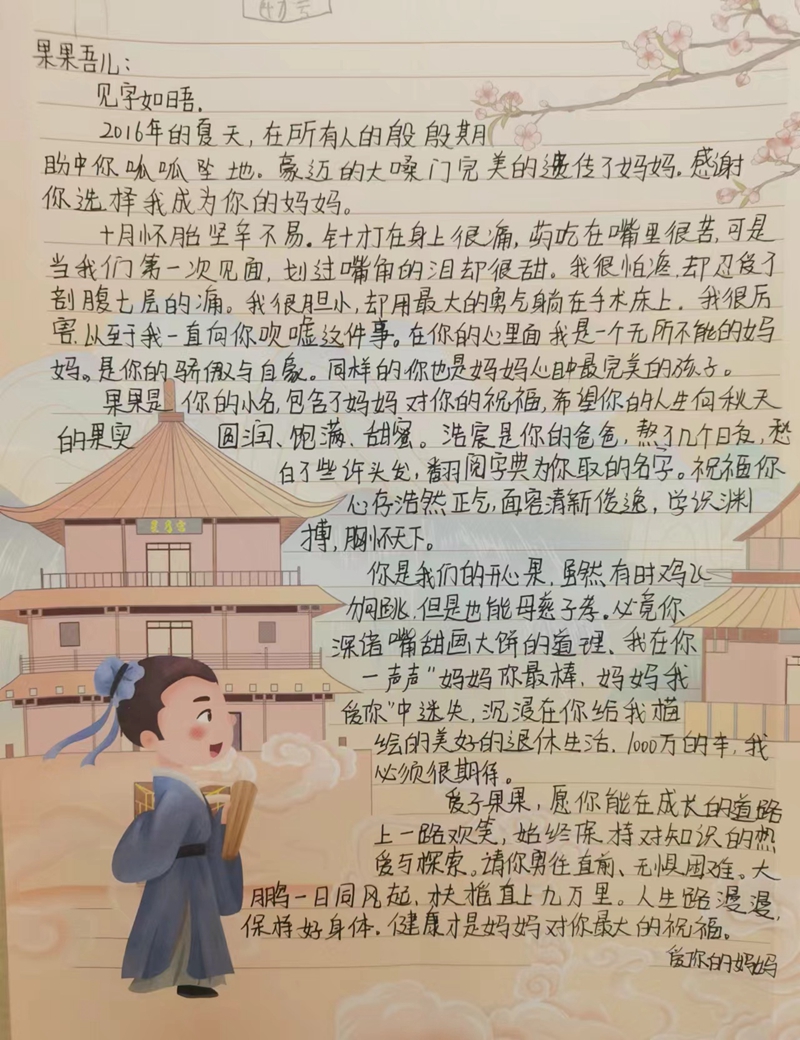 果果吾儿：
见字如晤.
2016年的夏天，在所有人的殷殷期
盼中你呱呱坠地。豪迈的大嗓门完美的遗传了妈妈。感谢
你选择我成为你的妈妈。
十月怀胎坚辛不易。针打在身上很痛，药吃在嘴里很苦，可是
当我们第一次见面，划过嘴角的泪却很甜。我很怕疼，却忍受了
剖腹七层的痛。我很胆小，却用最大的勇气躺在手术床上。我很厉
害，以至于我一直向你吹嘘这件事。在你的心里面我是一个无所不能的妈
妈。是你的骄傲与自豪。同样的你也是妈妈心目中最完美的孩子。
果果是你的小名，包含了妈妈对你的祝福，希望你的人生向秋天
的果实 圆润、饱满、甜蜜。浩宸是你的爸爸，熬了几个日夜，愁
白了些许头发，翻阅字典为你取的名字。祝福你
心存浩然正气，面容清新俊逸，学识渊
搏，胸怀天下。
你是我们的开心果，虽然有时鸡飞
狗跳，但是也能母慈子孝。必竟你
深谙嘴甜画大饼的道理。我在你
一声声“妈妈你最棒，妈妈我
爱你”中迷失，沉浸在你给我描
绘的美好的退休生活，1000万的车，我
必须很期待。
爱子果果，愿你能在成长的道路
上一路欢笑，始终保持对知识的热
爱与探索。请你勇往直前、无惧困难。大
鹏一日同风起，扶摇直上九万里。人生路漫漫，
保持好身体。健康才是妈妈对你最大的祝福。
爱你的妈妈